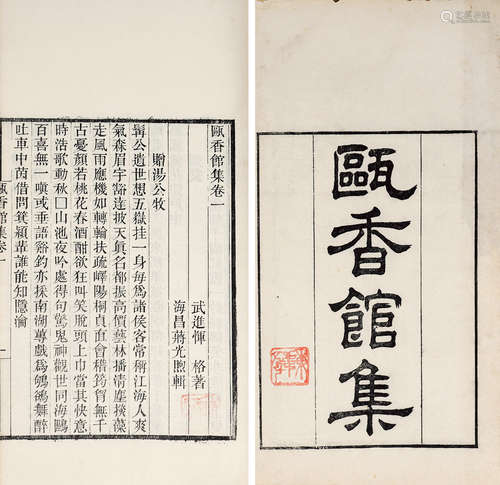 甌香館集
甌香館集卷一
武進惲　格著
海昌蔣光煦輯
贈湯公牧
髯公遺世想五嶽挂一身每爲諸侯客常稱江海人爽
氣森眉宇豁達披天眞名都振高價藝林播淸塵揆藻
走風雨應機如轉輪扶疏嶧陽桐貞直會稽筠胷無千
古憂顏若桃花春酒酣欲狂叫笑脫頭上巾當其快意
時浩歌動秋□山池夜吟處得句驚鬼神觀世同海鷗
百喜無一嗔或垂語谿釣亦採南湖蓴戲爲鴝鵒舞醉
吐車中茵借問箕潁輩誰能知隱淪
甌香館集卷一
一